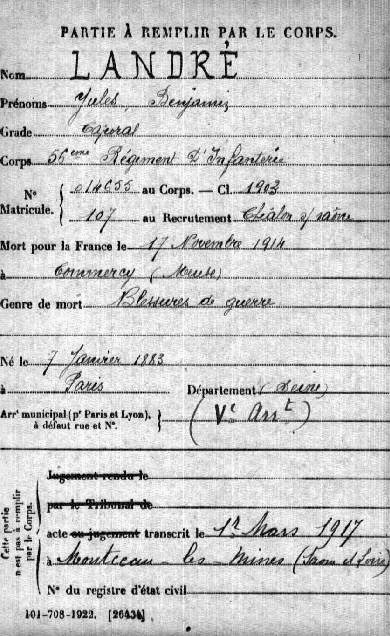 PARTIE À REMPLIR PAR LE CORPS.
Nom LANDRÉ
Prénoms Jules, Benjamin
Grade Caporal
Corps 56eme Régiment D'Infanterie
N° Matricule. { 014655 au Corps. — Cl. 1903
107 au Recrutement Châlon s/ saône
Mort pour la France le 17 Novembre 1914
à Commercy (Meuse)
Genre de mort Blessures de guerre
Né le 7 Janvier 1883
à Paris Département (Seine)
Arrt municipal (pr Paris et Lyon), à défaut rue et N°. } (Ve Arrt)
Cette partie n'est pas à remplir par le Corps.
Jugement rendu le
par le Tribunal de
acte ou jugement transcrit le 1er Mars 1917
à Montceau-les-Mines (Saône et Loire)
N° du registre d'état civil
101-708-1922. [26434]